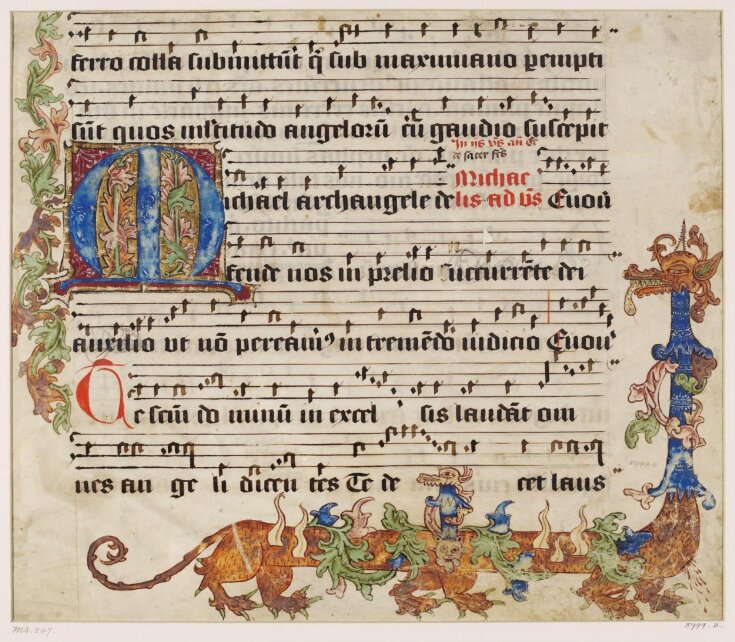 ferro colla submittūt q̄ sub maximiano pempti
sūt quos insticudo angelorū cū gaudio suscepit
Michael archangele de
Michae
lis ad vs̄ Euou
fende nos in prelio ut
dei
auxilio vt nō pereamꝰ in tremēdo iudicio Euou
Te scm̄ do minū in excel sis laudāt om
nes an ge li dicen tes Te de cet laus
8999.B
MS. 247
8999.B.